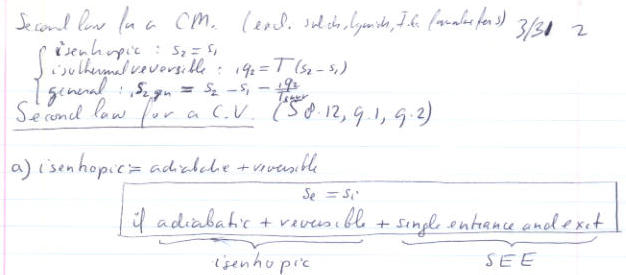 Second law for a CM. (excl. solids, liquids, I.G. (ma 3/31 2
isentropic : s₂ = s₁
isothermal reversible : ₁q₂ = T (s₂ - s₁)
general : ₁s₂ gen = s₂ - s₁ - ₁q₂/Tsurr
Second law for a C.V. (§ 8.12, 9.1, 9.2)
a) isentropic = adiabatic + reversible
se = si
if adiabatic + reversible + single entrance and exit
isentropic SEE